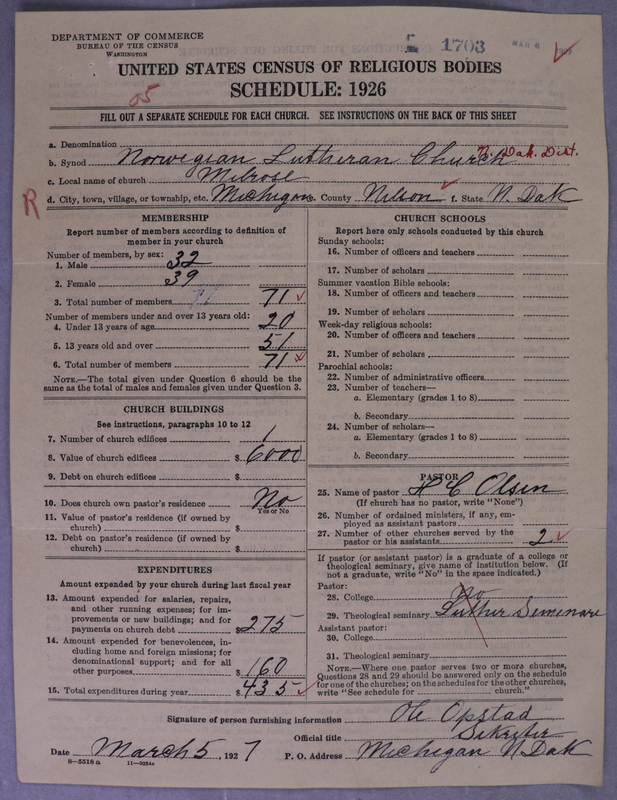 DEPARTMENT OF COMMERCE
BUREAU OF THE CENSUS
WASHINGTON
1703
MAR 8
UNITED STATES CENSUS OF RELIGIOUS BODIES
SCHEDULE: 1926
05
FILL OUT A SEPARATE SCHEDULE FOR EACH CHURCH. SEE INSTRUCTIONS ON THE BACK OF THIS SHEET
a. Denomination
b. Synod Norwegian Lutheran Church N. Dak. Dist.
c. Local name of church Melrose
R
d. City, town, village, or township, etc. Michigan e. County Nelson f. State N. Dak
MEMBERSHIP
Report number of members according to definition of member in your church
Number of members, by sex:
1. Male 32
2. Female 39
3. Total number of members 71
Number of members under and over 13 years old:
4. Under 13 years of age 20
5. 13 years old and over 51
6. Total number of members 71
NOTE.—The total given under Question 6 should be the
same as the total of males and females given under Question 3.
CHURCH BUILDINGS
See instructions, paragraphs 10 to 12
7. Number of church edifices 1
8. Value of church edifices $ 6000
9. Debt on church edifices $
10. Does church own pastor's residence No
Yes or No
11. Value of pastor's residence (if owned by
church) $
12. Debt on pastor's residence (if owned by
church) $
EXPENDITURES
Amount expended by your church during last fiscal year
13. Amount expended for salaries, repairs,
and other running expenses; for im-
provements or new buildings; and for
payments on church debt $ 275
14. Amount expended for benevolences, in-
cluding home and foreign missions; for
denominational support; and for all
other purposes $ 160
15. Total expenditures during year $ 435
CHURCH SCHOOLS
Report here only schools conducted by this church
Sunday schools:
16. Number of officers and teachers
17. Number of scholars
Summer vacation Bible schools:
18. Number of officers and teachers
19. Number of scholars
Week-day religious schools:
20. Number of officers and teachers
21. Number of scholars
Parochial schools:
22. Number of administrative officers
23. Number of teachers—
a. Elementary (grades 1 to 8)
b. Secondary
24. Number of scholars—
a. Elementary (grades 1 to 8)
b. Secondary
PASTOR
25. Name of pastor H C Olsen
(If church has no pastor, write "None")
26. Number of ordained ministers, if any, em-
ployed as assistant pastors
27. Number of other churches served by the
pastor or his assistants 2
If pastor (or assistant pastor) is a graduate of a college or
theological seminary, give name of institution below. (If
not a graduate, write "No" in the space indicated.)
Pastor:
28. College No
29. Theological seminary Luthur Seminare
Assistant pastor:
30. College
31. Theological seminary
NOTE.—Where one pastor serves two or more churches,
Questions 28 and 29 should be answered only on the schedule
for one of the churches; on the schedules for the other churches,
write "See schedule for church."
Signature of person furnishing information Ole Opstad
Official title Sekretær
Date March 5, 1927 P. O. Address Michigan N Dak
8—5518a 11—9284a